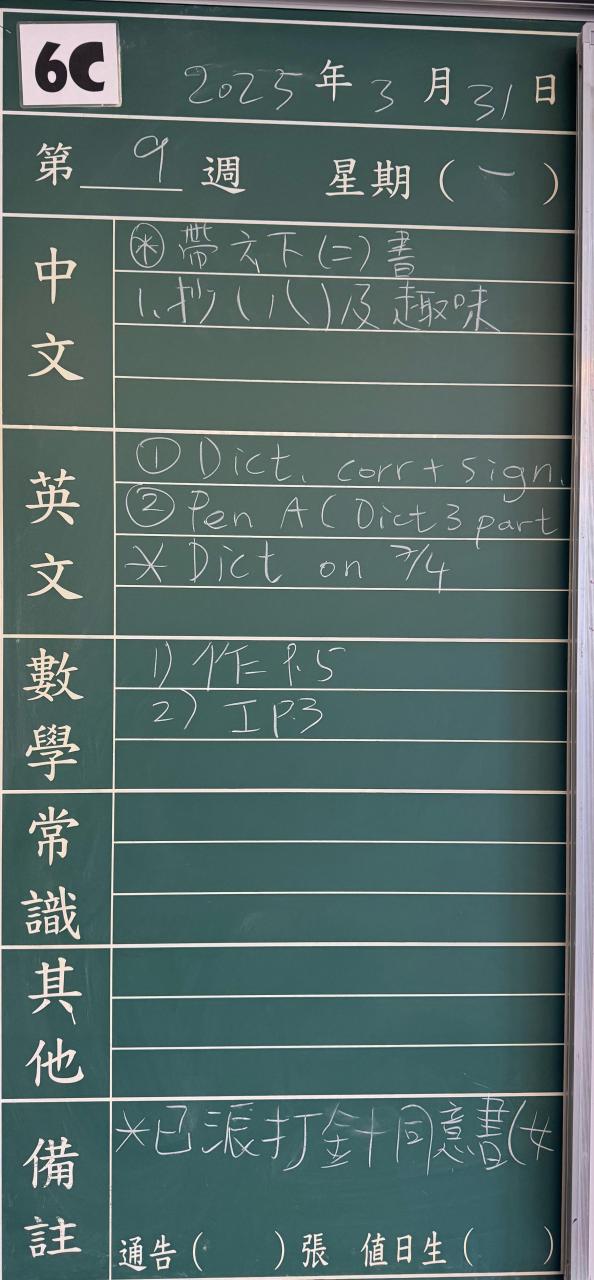 6C
2025年3月31日
第 9 週 星期(一)
中文
⊛ 帶六下(二)書
1. 抄(八)及趣味
英文
① Dict. corr + sign.
② Pen A ( Dict 3 part
* Dict on 7/4
數學
1) 作 P.5
2) I P.3
常識
其他
備註
*已派打針同意書(女
通告( )張 值日生( )